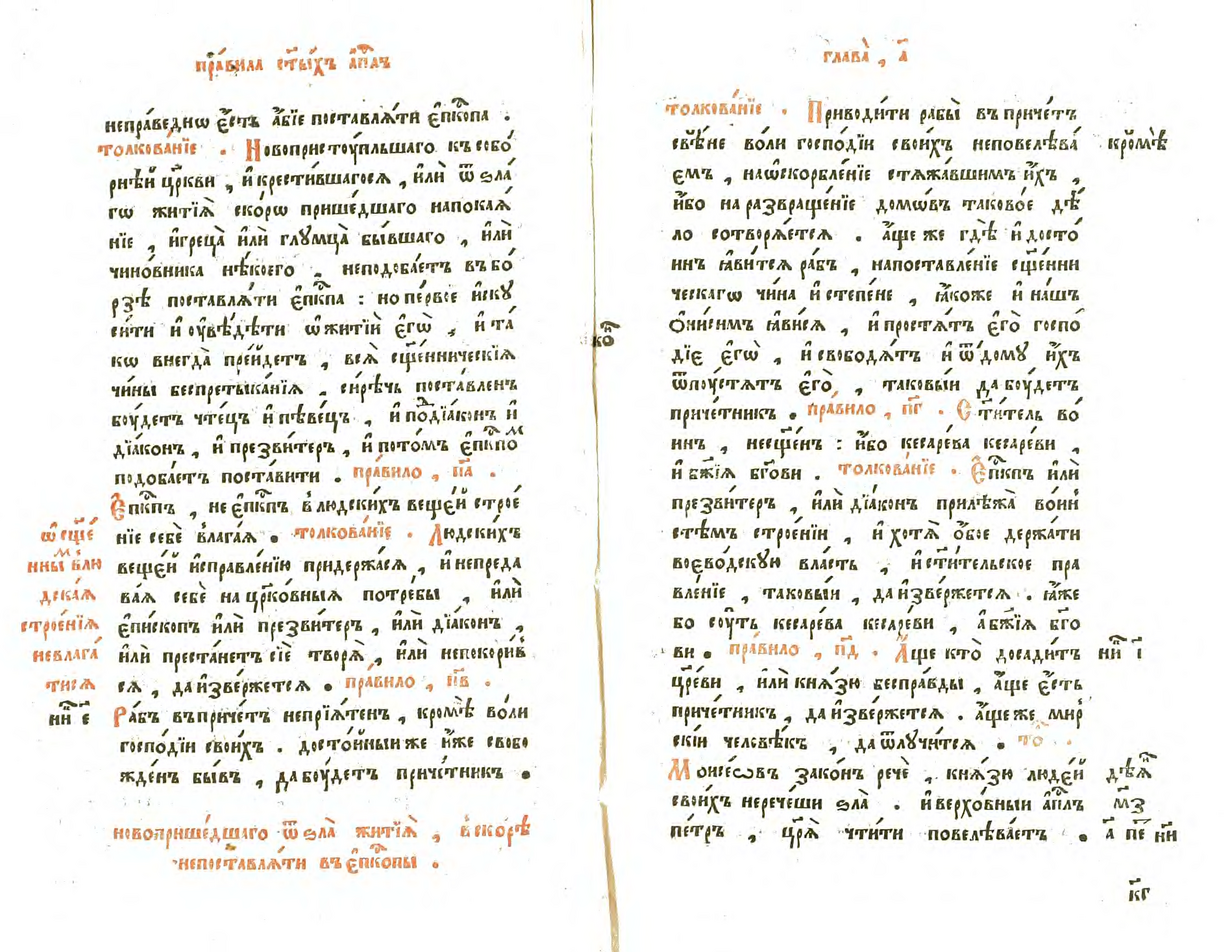 пра́вила ст҃ы́хъ а҆пⷭ҇лъ
непра́веднѡ є҆́сть а҆́бїе поставлѧ́ти є҆пⷭ҇кпа .
толкова́нїе . Новопристоу́пльшаго къ собо́
рнѣй цр҃кви , и҆ крестившагосѧ , и҆лѝ ѿ ѕла́
гѡ житїѧ̀ ско́рѡ прише́дшаго на покаѧ́
нїе , и҆грецѧ̀ и҆лѝ глꙋмцѧ̀ бы́вшаго , и҆лѝ
чино́вника нѣ́коего , неподоба́етъ въ бо́
рзѣ поставлѧ́ти є҆пⷭ҇кпа : но пе́рвое и҆скꙋ
си́ти и҆ оу҆вѣ́дѣти ѡ҆ житїѝ є҆гѡ̀ , и҆ та́
кѡ внегда̀ пре́йдетъ , всѧ̀ сщ҃е́нническїѧ
чи́ны беспретыка́нїѧ , си́рѣчь поста́вленъ
боу́детъ чте́цъ и҆ пѣве́цъ , и҆ по́дїаконъ и҆
дїа́конъ , и҆ презви́теръ , и҆ пото́мъ є҆пⷭ҇кпо
подоба́етъ поста́вити . пра́вило , п҃а .
Є҆пⷭ҇кпъ , не є҆пⷭ҇кпъ в люⷣскихъ веще́й строе́
нїе себѐ влага́ѧ . толкова́нїе . Людски́хъ
веще́й и҆справле́нїю придержа́сѧ , и҆ непреда
ва́ѧ себѐ на цр҃ко́вныѧ потре́бы , и҆лѝ
є҆пи́скопъ и҆лѝ презви́теръ , и҆лѝ дїа́конъ ,
и҆лѝ преста́нетъ сїѐ творѧ̀ , и҆лѝ непокори́в
сѧ , да и҆зве́ржетсѧ . пра́вило , п҃в .
Ра́бъ въ приче́тъ непрїѧ́тенъ , кро́мѣ во́ли
госпо́дїи свои́хъ . досто́йныи же и҆́же свобо
жде́нъ бы́въ , да боу́детъ приче́тникъ .
ѡ҆ сщ҃е́
нны́мъ в лю
дска́ѧ
строе́нїѧ
не влага́
тисѧ
ни҃ е҃
новоприше́дшаго ѿ ѕла̀ житїѧ̀ , в ско́рѣ
не поставлѧ́ти въ є҆пⷭ҇копы .
глава̀ , а҃
толкова́нїе . Приводи́ти рабы̀ въ приче́тъ
све́не во́ли госпо́дїи свои́хъ неповелѣва́
емъ , на ѡ҆скорбле́нїе стѧжа́вшимъ и҆́хъ ,
и҆́бо на развраще́нїе домѡ́въ таково́е дѣ́
ло сотворѧ́етсѧ . а҆́ще же гдѣ̀ и҆ досто́
инъ ꙗ҆ви́тсѧ ра́бъ , на поставле́нїе сщ҃е́нни
ческагѡ чи́на и҆ степе́не , ꙗ҆́коже и҆ на́шъ
Ѻ҆ни́симъ ꙗ҆ви́сѧ , и҆ простѧ́тъ є҆го̀ госпо
дїе є҆гѡ̀ , и҆ свободѧ́тъ и҆ ѿ до́мꙋ и҆́хъ
ѿпоу́стѧтъ є҆го̀ , таковы́и да боу́детъ
приче́тникъ . пра́вило , п҃г . Ст҃и́тель во́
инъ , несщ҃е́нъ : и҆́бо кеса́рева ке́сареви ,
и҆ бж҃їѧ бг҃ови . толкова́нїе . Є҆пⷭ҇кпъ и҆лѝ
презви́теръ , и҆лѝ дїа́конъ прилѣжа̀ во́ин
стѣмъ строе́нїи , и҆ хотѧ̀ ѻ҆бо́е держа́ти
воево́дскꙋю вла́сть , и҆ ст҃и́тельское пра
вле́нїе , таковы́и , да и҆зве́ржетсѧ . ꙗ҆́же
бо соу́ть кеса́рева ке́сареви , а҆ бж҃їѧ бг҃о
ви . пра́вило , п҃д . А҆́ще кто̀ досади́тъ
цр҃е́ви , и҆лѝ кнѧ́зю беспра́вды , а҆́ще є҆́сть
приче́тникъ , да и҆зве́ржетсѧ . а҆́ще же мир
скі́и человѣ́къ , да ѿлꙋчи́тсѧ . то .
Моисе́ѡвъ зако́нъ речѐ , кнѧ́зю люде́й
свои́хъ нерече́ши ѕла̀ . и҆ верхо́вныи а҆пⷭ҇лъ
пе́тръ , цр҃ѧ̀ чти́ти повелѣва́етъ .
кро́мѣ
ни҃ і҃
дѣѧⷩ҇
м҃з
а҃ пе ни
к҃г